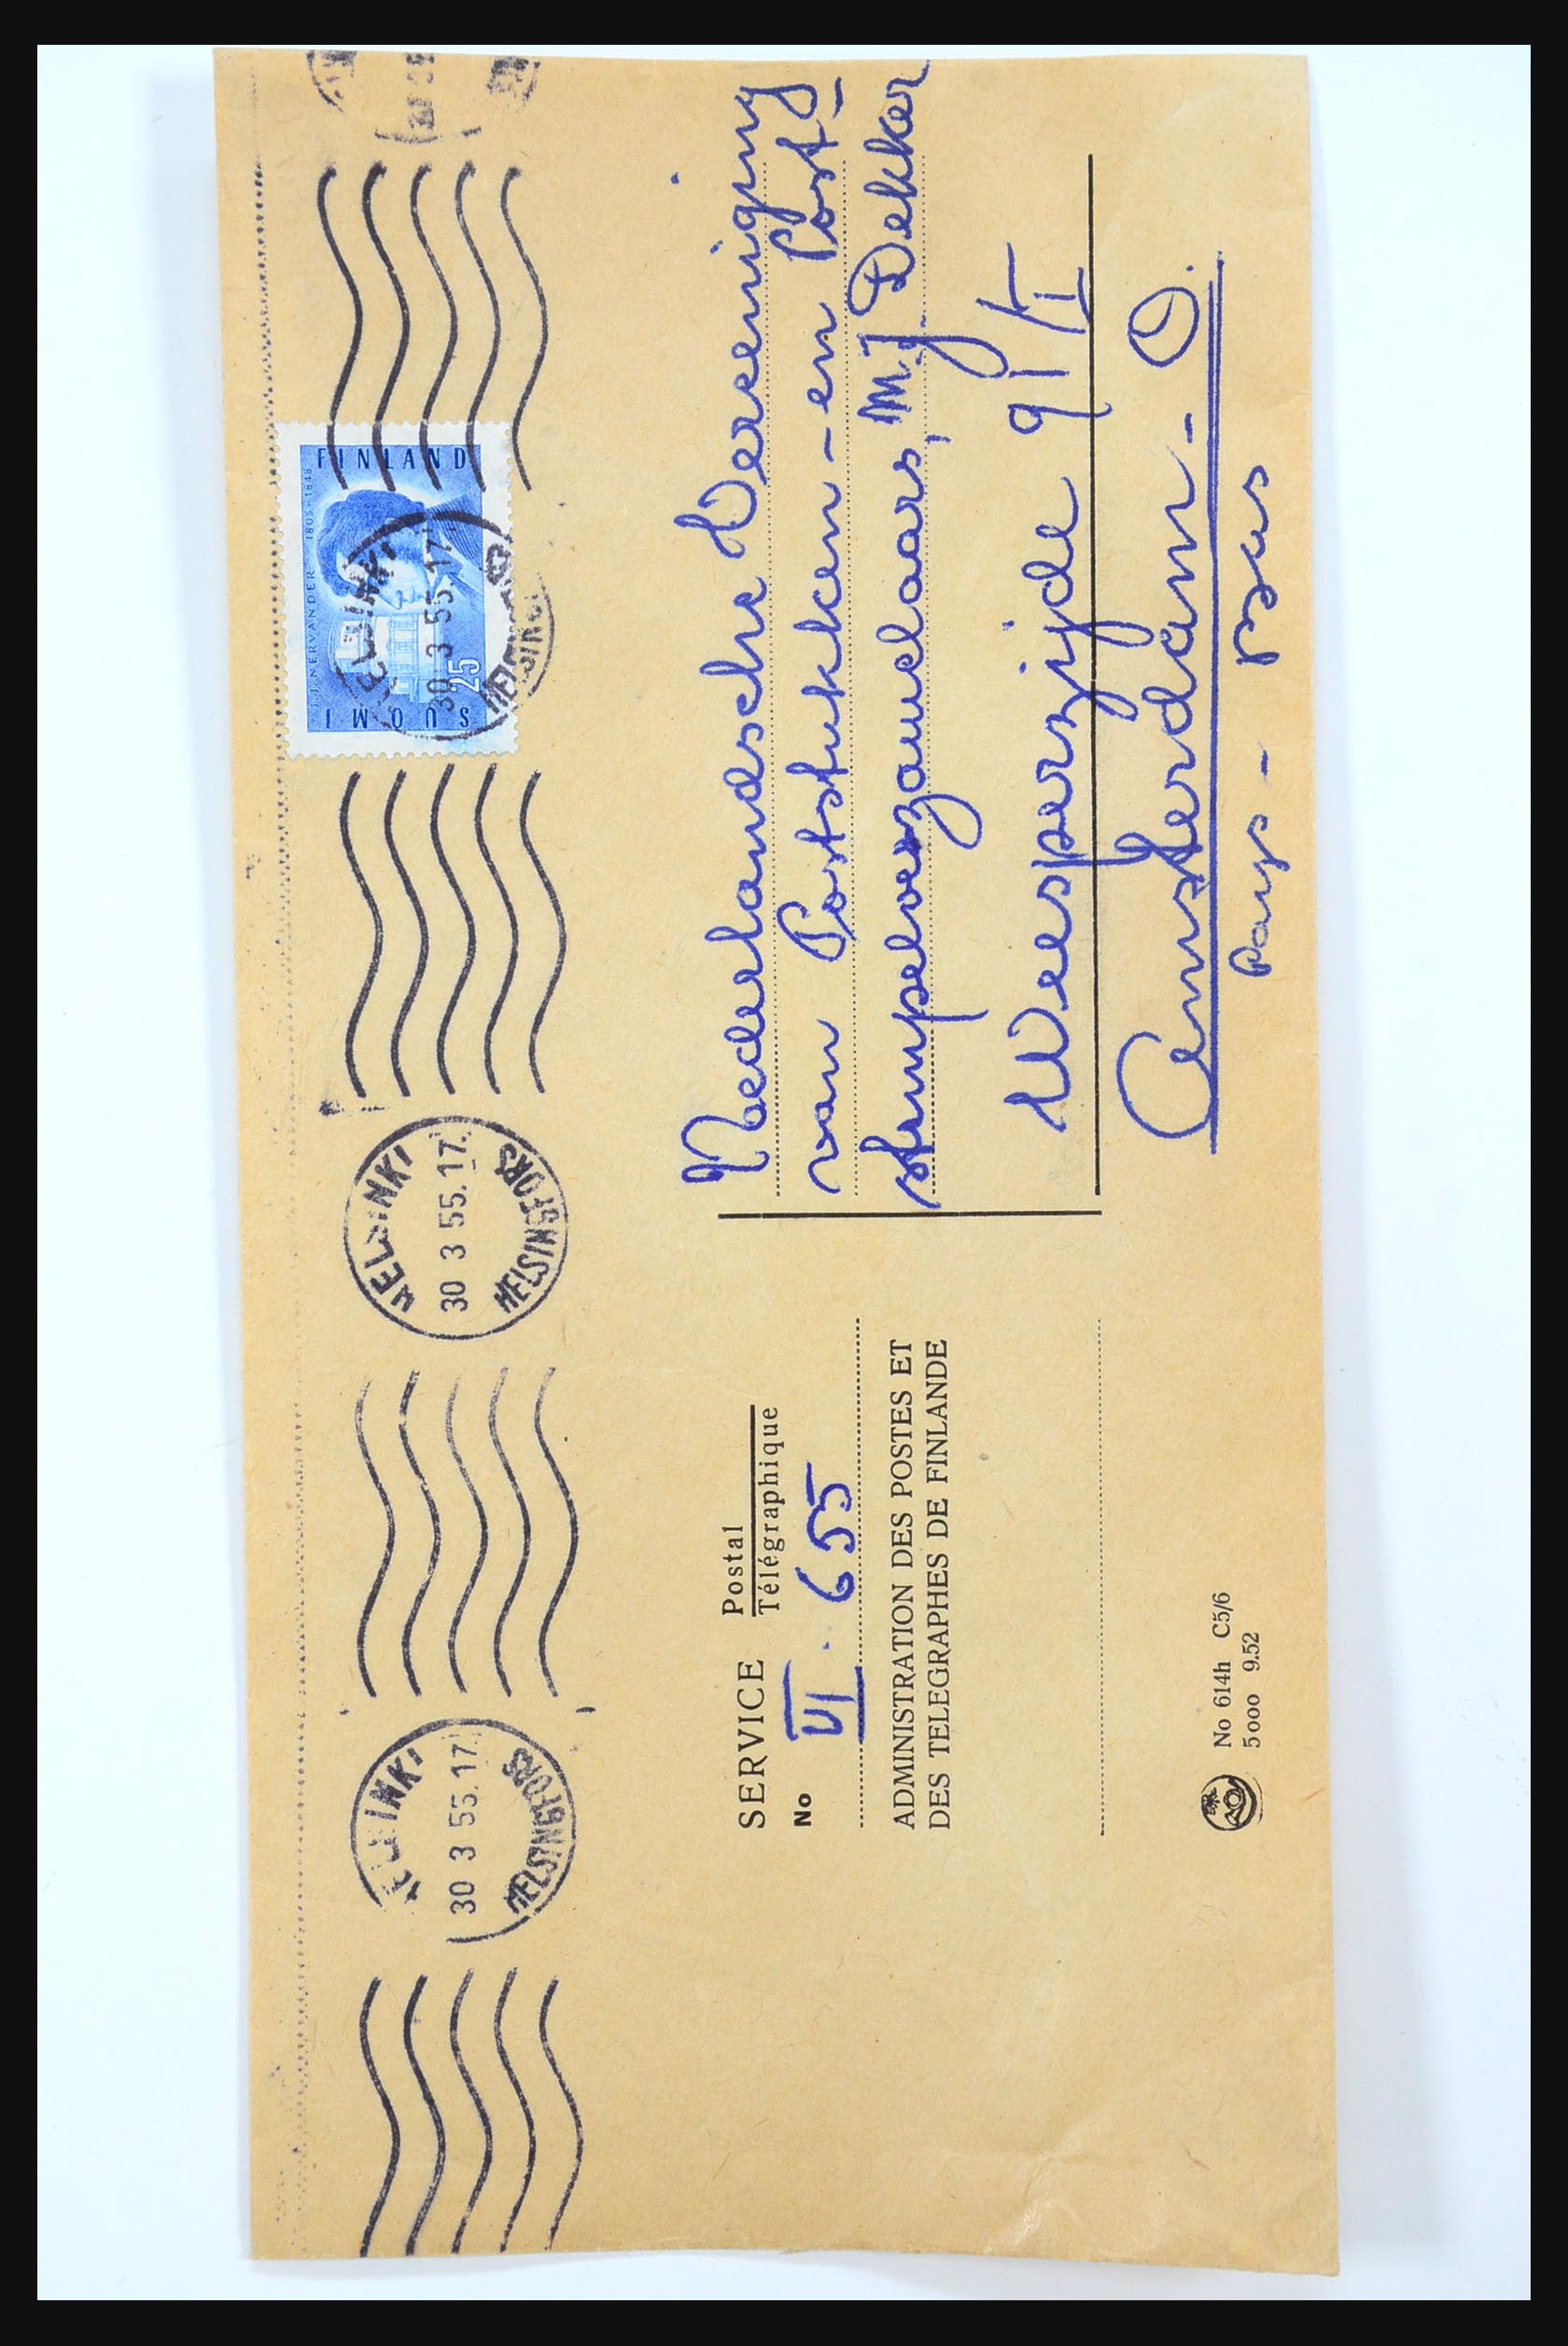 HELSINKI
30 3 55.17
HELSINGFORS
HELSINKI
30 3 55.17
HELSINGFORS
J.J. NERVANDER 1805-1848
SUOMI
25
FINLAND
HELSINKI
30 3 55.17
SERVICE Postal
Télégraphique
No VI. 655
ADMINISTRATION DES POSTES ET
DES TELEGRAPHES DE FINLANDE
No 614h C5/6
5000 9.52
Nederlandsche Vereeniging
van Poststukken-en Post-
stempelverzamelaars, M.J. Dekker
Weesperzijde 91/II
Amsterdam - O.
Pays-Bas